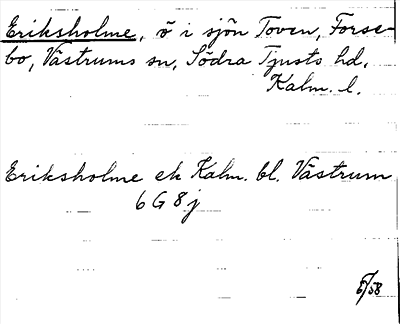 Eriksholme, ö i sjön Toven, Forse-
bo, Västrums sn, Södra Tjusts hd,
Kalm. l.
Eriksholme ek Kalm. bl. Västrum
6 G 8 j
6/58